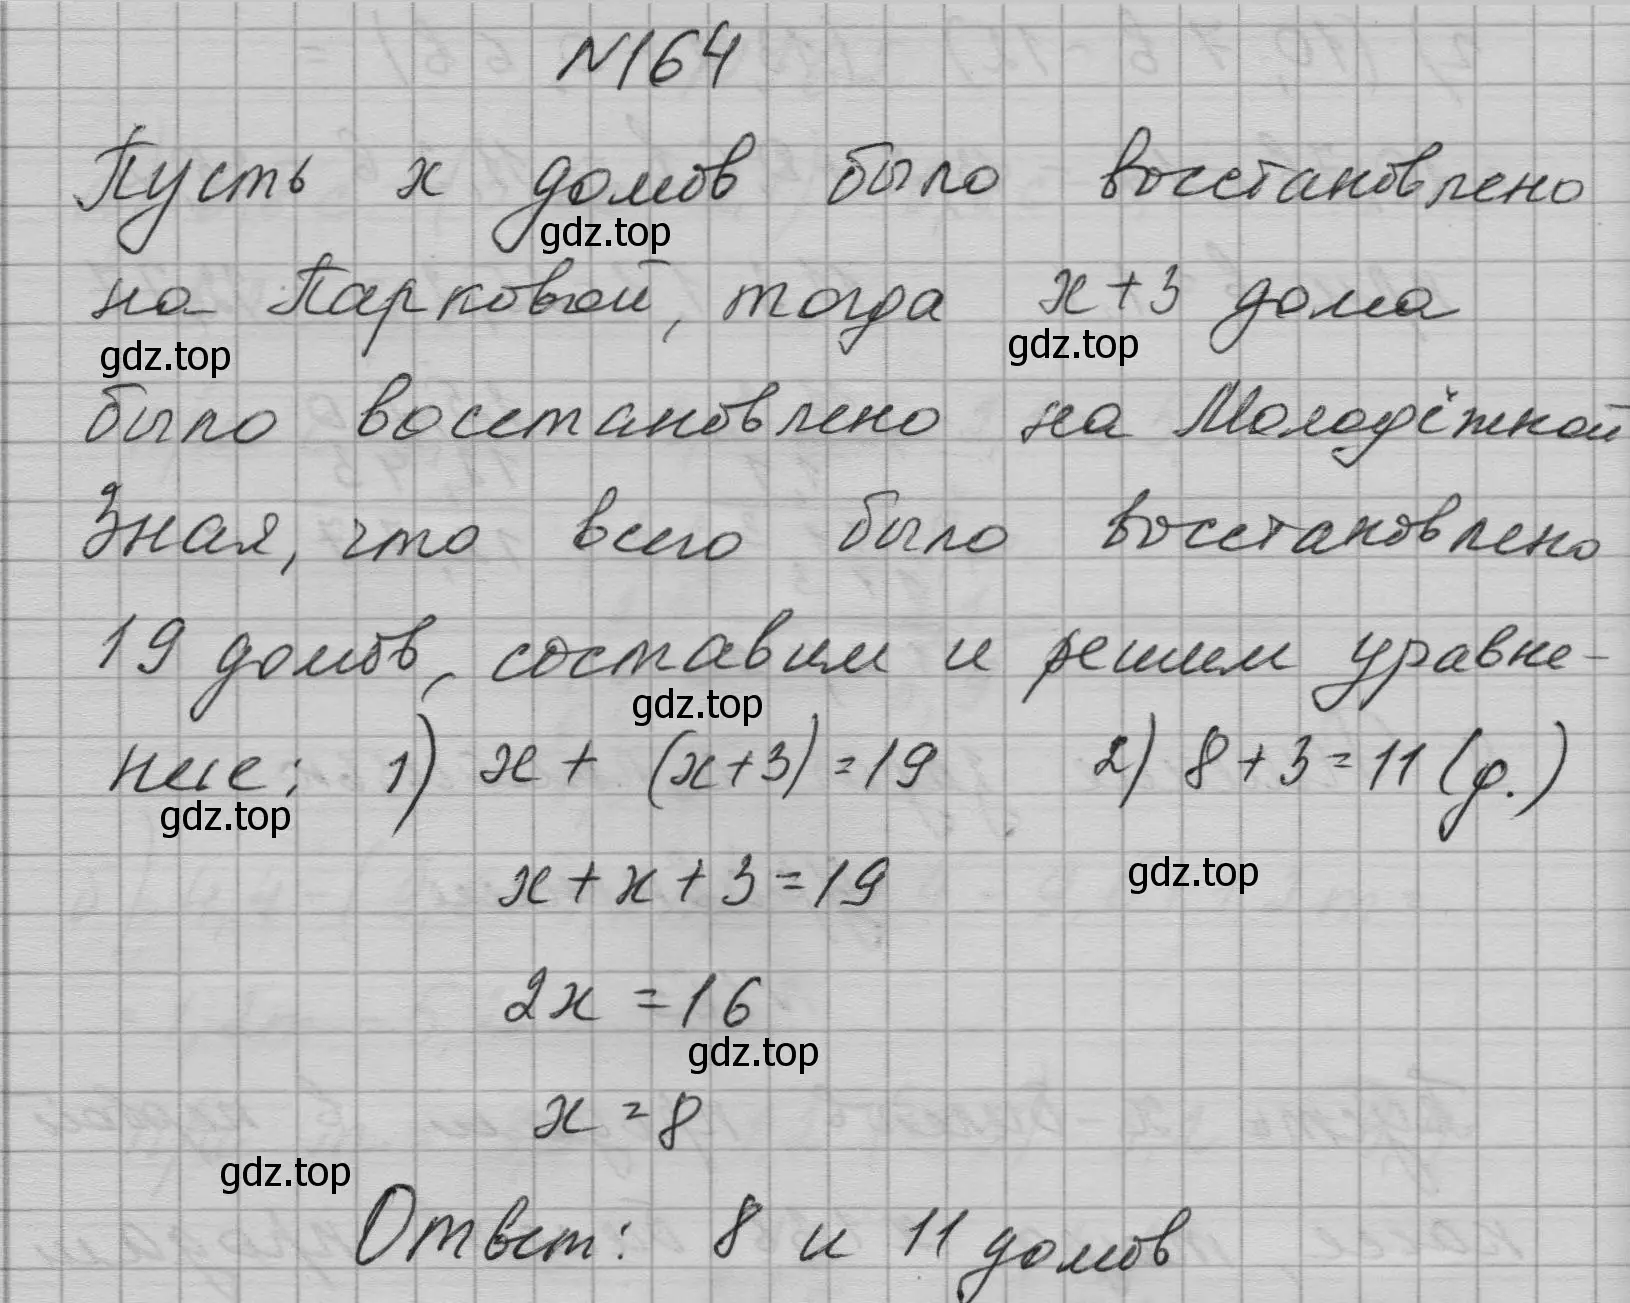 №164
Пусть х домов было восстановлено
gdz.top
на Парковой, тогда х+3 дома
gdz.top gdz.top
было восстановлено на Молодёжной
Зная, что всего было восстановлено
19 домов, составим и решим уравне-
gdz.top
ние: 1) х + (х+3)=19 2) 8+3=11 (д.)
gdz.top
х+х+3=19
gdz.top
2х=16
gdz.top
х=8
gdz.top
Ответ: 8 и 11 домов